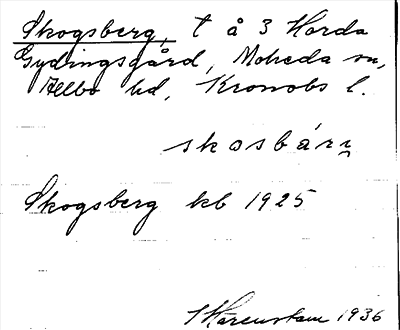 Skogsberg, t å 3 Horda
Gydingsgård, Moheda sn,
Allbo hd, Kronobs l.
skosbárı̯
Skogsberg kb 1925
Harenstam 1936